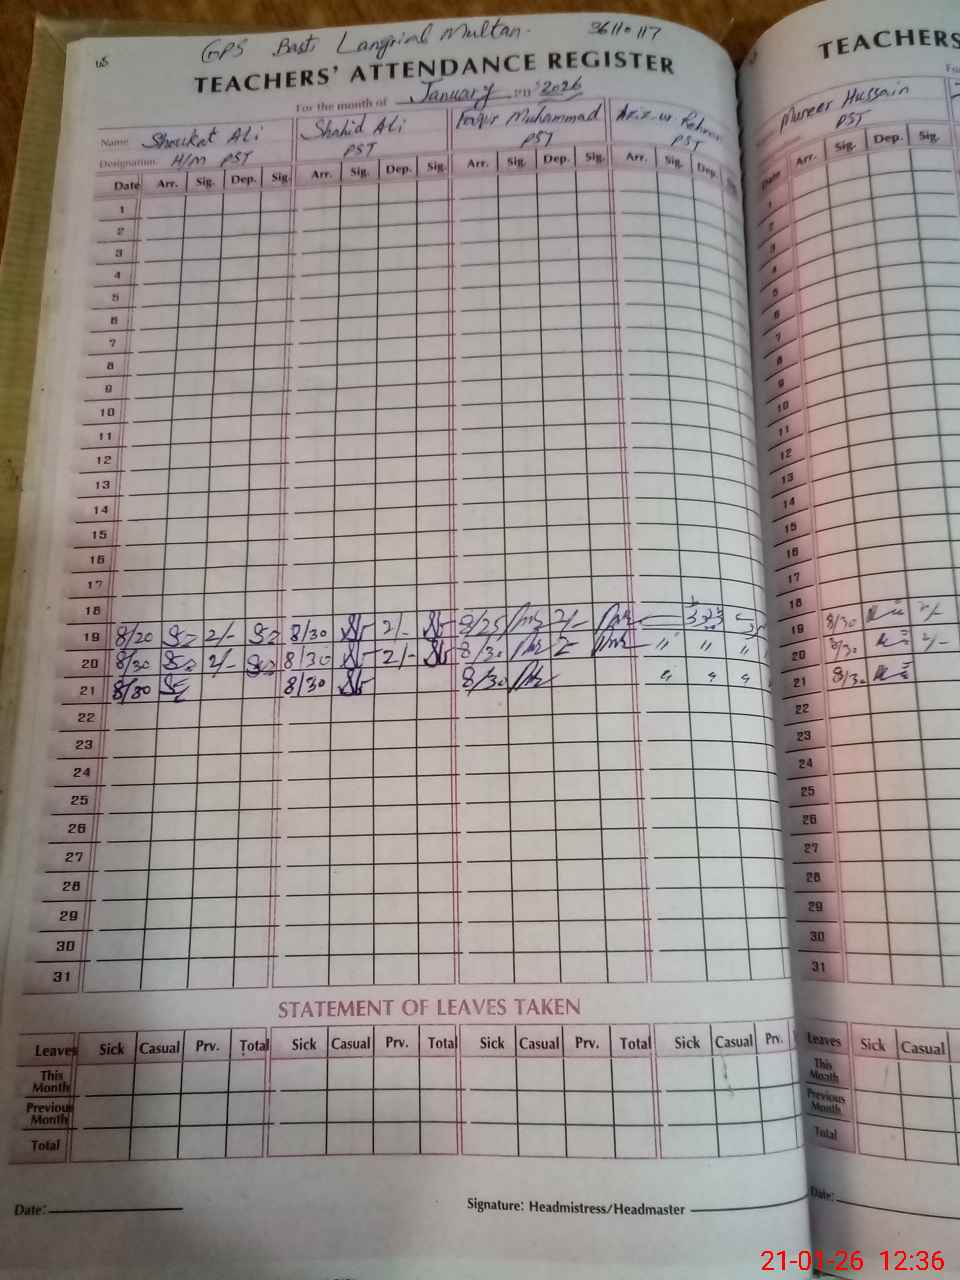 GPS Basti Langrial Multan. 36110117
TEACHERS' ATTENDANCE REGISTER
For the month of January 2026
Name Shoukat Ali Shahid Ali Faqir Muhammad Aziz ur Rehman
Designation H/M PST PST PST PST
Date Arr. Sig. Dep. Sig. Arr. Sig. Dep. Sig. Arr. Sig. Dep. Sig. Arr. Sig. Dep. Sig.
1
2
3
4
5
6
7
8
9
10
11
12
13
14
15
16
17
18
19 8/20 2/- 8/30 2/- 8/25 2/-
20 8/30 2/- 8/30 2/- 8/30 2 " " "
21 8/30 8/30 8/30 " " "
22
23
24
25
26
27
28
29
30
31
STATEMENT OF LEAVES TAKEN
Leaves Sick Casual Prv. Total Sick Casual Prv. Total Sick Casual Prv. Total Sick Casual Prv.
This Month
Previous Month
Total
Date: Signature: Headmistress/Headmaster
TEACHERS
Muneer Hussain
PST
Date Arr. Sig. Dep. Sig.
1
2
3
4
5
6
7
8
9
10
11
12
13
14
15
16
17
18
19 8/30 2/-
20 8/30 2/-
21 8/30
22
23
24
25
26
27
28
29
30
31
Leaves Sick Casual
This Month
Previous Month
Total
Date:
21-01-26 12:36